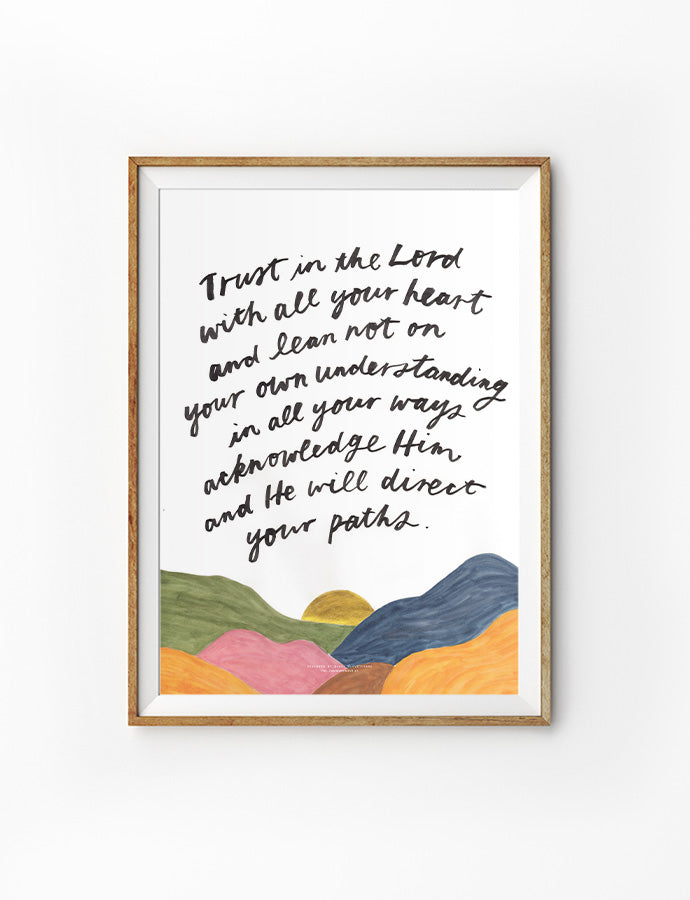 Trust in the Lord
with all your heart
and lean not on
your own understanding
in all your ways
acknowledge Him
and He will direct
your paths.